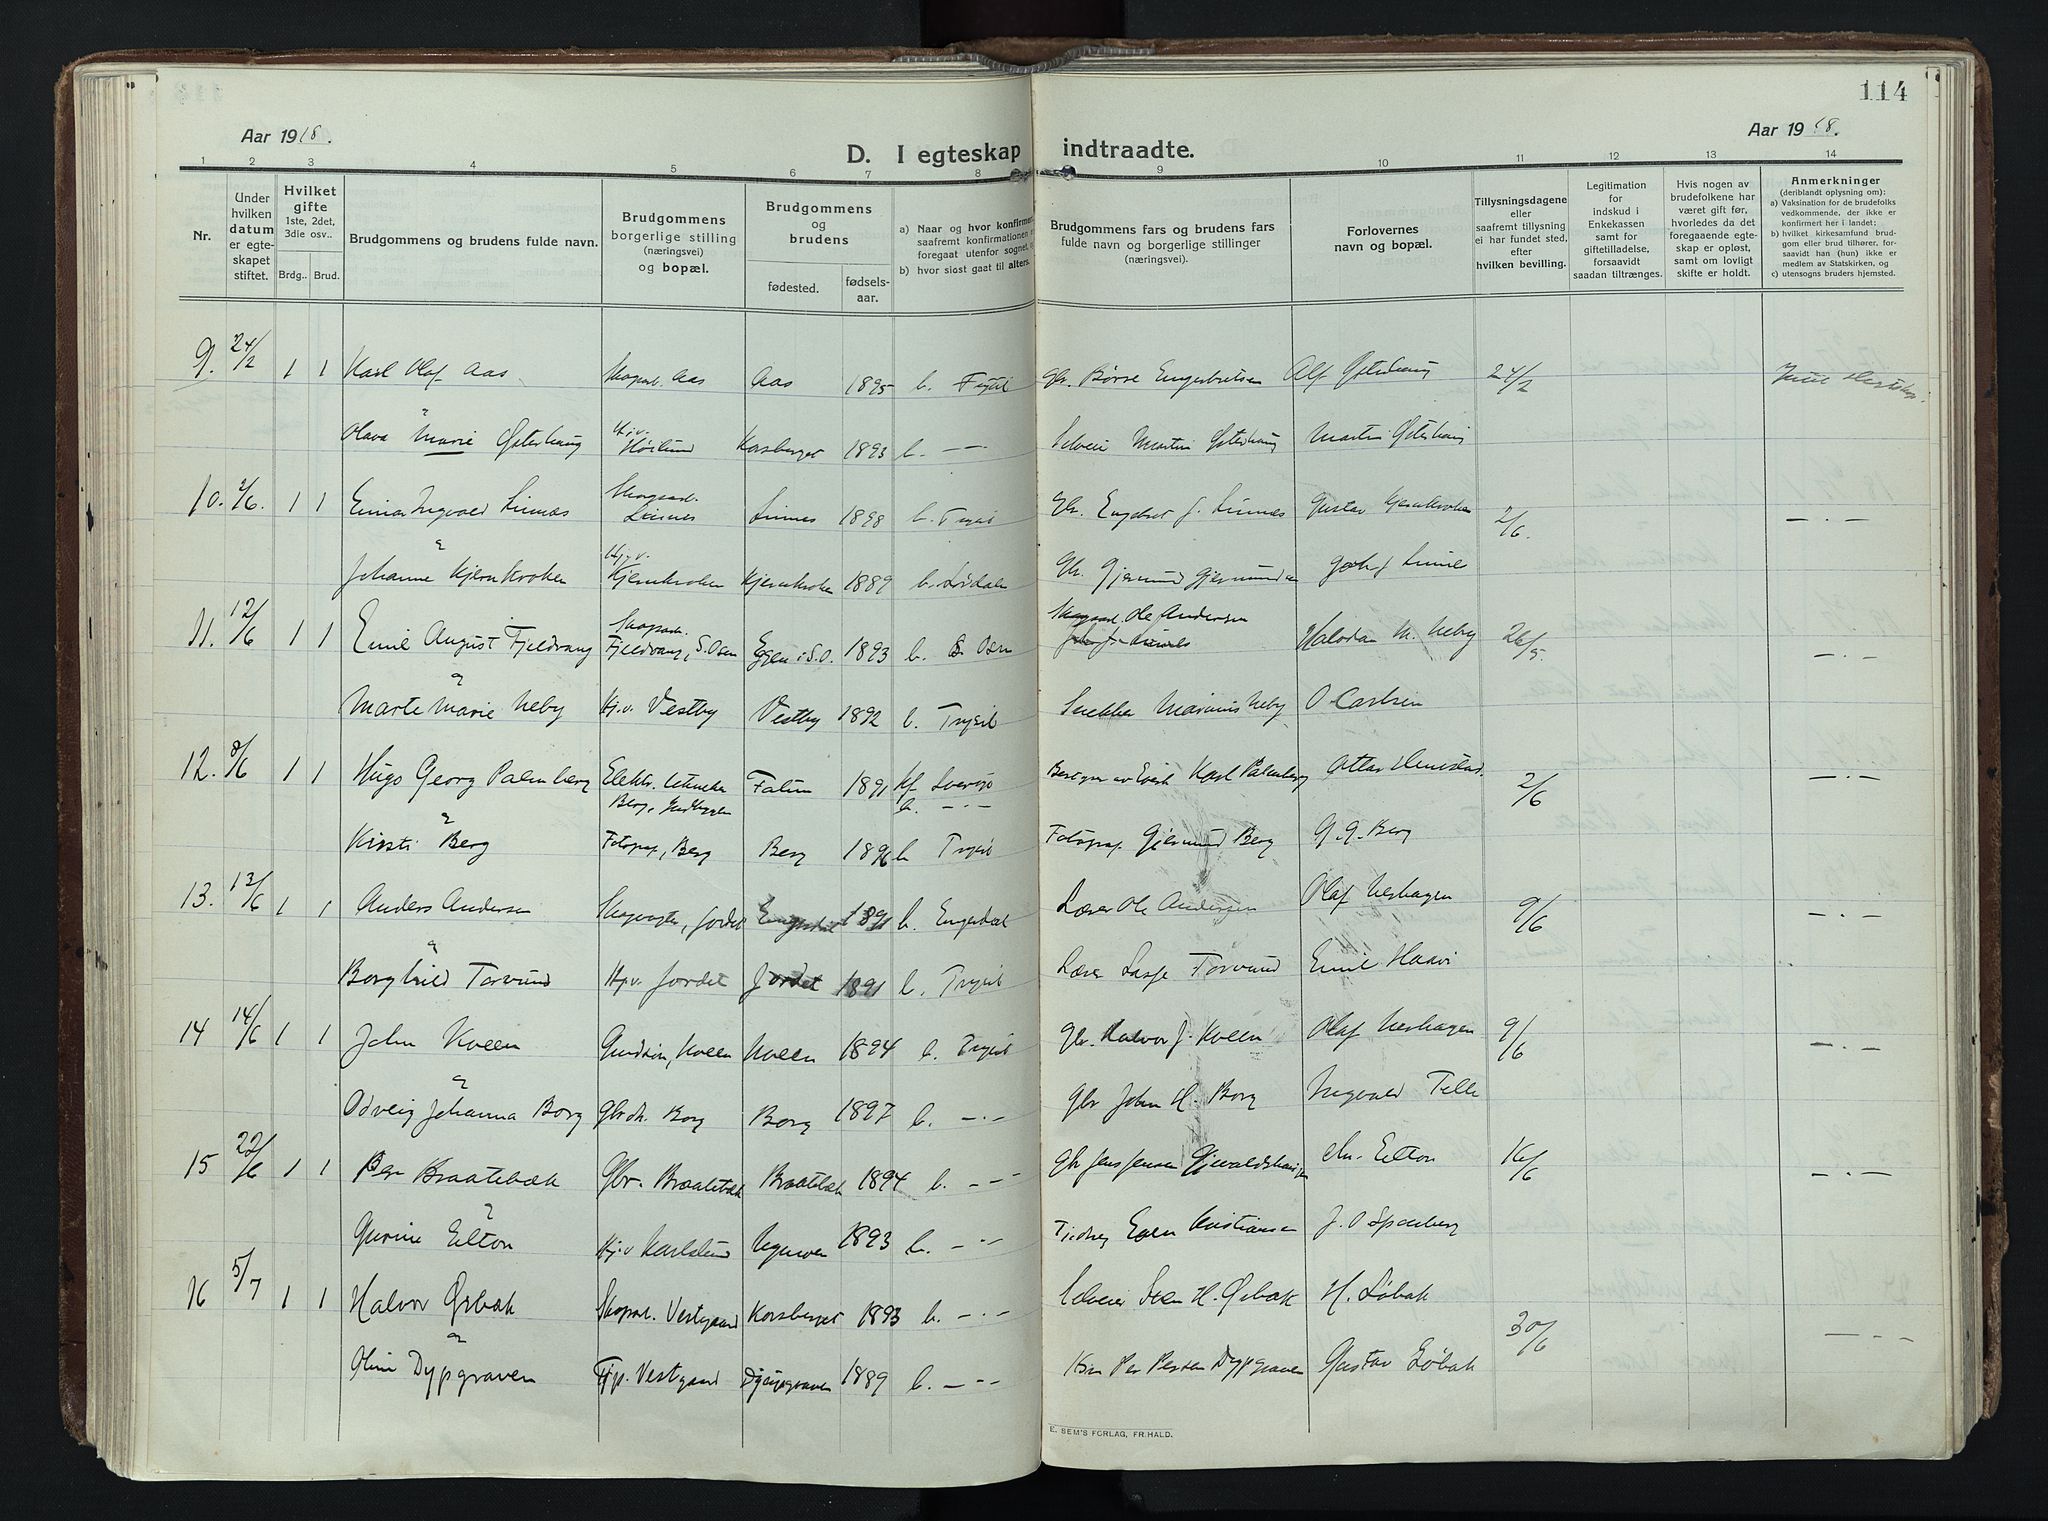 114
Aar 1918.
Aar 1918.
D. I egteskap indtraadte.
1 2 3 4 5 6 7 8 9 10 11 12 13 14
Nr.
Under hvilken datum er egteskapet stiftet.
Hvilket gifte 1ste, 2det, 3die osv..
Brdg.. Brud.
Brudgommens og brudens fulde navn.
Brudgommens borgerlige stilling (næringsvei) og bopæl.
Brudgommens og brudens
fødested. fødselsaar.
a) Naar og hvor konfirmert
saafremt konfirmationen
foregaat utenfor sognet,
b) hvor sidst gaat til alters.
Brudgommens fars og brudens fars fulde navn og borgerlige stillinger (næringsvei).
Forlovernes navn og bopæl.
Tillysningsdagene eller saafremt tillysning ei har fundet sted, efter hvilken bevilling.
Legitimation for indskud i Enkekassen samt for giftetilladelse, forsaavidt saadan tiltrænges.
Hvis nogen av brudefolkene har været gift før, hvorledes da det foregaaende egteskap er opløst, samt om lovligt skifte er holdt.
Anmerkninger
(deriblandt oplysning om):
a) Vaksination for brudefolks vedkommende, der ikke er konfirmert her i landet;
b) hvilket kirkesamfund brudgom eller brud tilhører, forsaavidt han (hun) ikke er medlem av Statskirken, og
c) utensogns bruders hjemsted.
9. 24/2 1 1 Karl Olaf Aas Skogsarb. Aas Aas 1895 b. Trysil Gbr. Børre Engebretsen Alf Østerhaug 24/2
Olava Marie Østerhaug Hj.v. Korsberget 1893 b. — Selveier Martin Østerhaug Martin Østerhaug
10. 2/6. 1 1 Einar Ingvald Linnes Skogsarb. Linnes Linnes 1898 b. Trysil Gbr. Engebret J. Linnes Gustav Kjernkroken 2/6. — . —
Johanne Kjernkroken Hj.v. Kjernkroken Kjernkroken 1889 b. Gbr. Gjermund Gjermundsen
11. 12/6 1 1 Emil August Fjeldvang Skogsarb. Fjeldvang, S. Osen Eggen i S.O. 1893 b. S. Osen Skogsarb. Ole Andersen Halvdan M. Neby 26/5. — . —
Marte Marie Neby Hj.v. Vestby Vestby 1892 b. Trysil Snekker Marinus Neby O Carlsen
12. 8/6 1 1 Hugo Georg Palmberg Elektr. Berg, Falun 1891 Kf. b. — . — Karl Palmberg 2/6 — . —
Kirsti Berg Fotograf, Berg Berg 1896 b. Trysil Fotograf Gjermund Berg G. G. Berg
13. 13/6 1 1 Anders Andersen Skogvogter, Jordet Engerdal 1891 b. Engerdal Lærer Ole Andersen Olaf Neshagen 9/6 — . —
Borghild Torvund Hj.v. Jordet Jordet 1891 b. Trysil Lærer Lasse Torvund Emil Haavi
14 14/6 1 1 John Kveen Kveen Kveen 1894 b. Trysil Gbr. Halvor J. Kveen Olaf Neshagen 9/6 — . —
Odveig Johanna Borg Gbr.dt. Borg Borg 1897 b. — . — Gbr John H. Borg Ingvald Telle
15 22/6 1 1 Per Braatebæk Gbr. Braatebæk Braatebæk 1894 b. — . — Gbr Jens Jensen Chr. Elton 16/6 — . —
Gurine Elton Hj.v Karlslund 1893 b. — . — Kristiansen J. O Sponberg
16 5/7 1 1 Halvor Ørbæk Skogsarb. Vestgaard Korsberget 1893 b. — . — Selveier Sven H. Ørbæk H. Løbak 30/6 — . —
Oline Dypgraven Vestgaard Dypgraven 1889 b. — . — Per Persen Dypgraven Gustav Løbak
E. SEM'S FORLAG, FR.HALD.